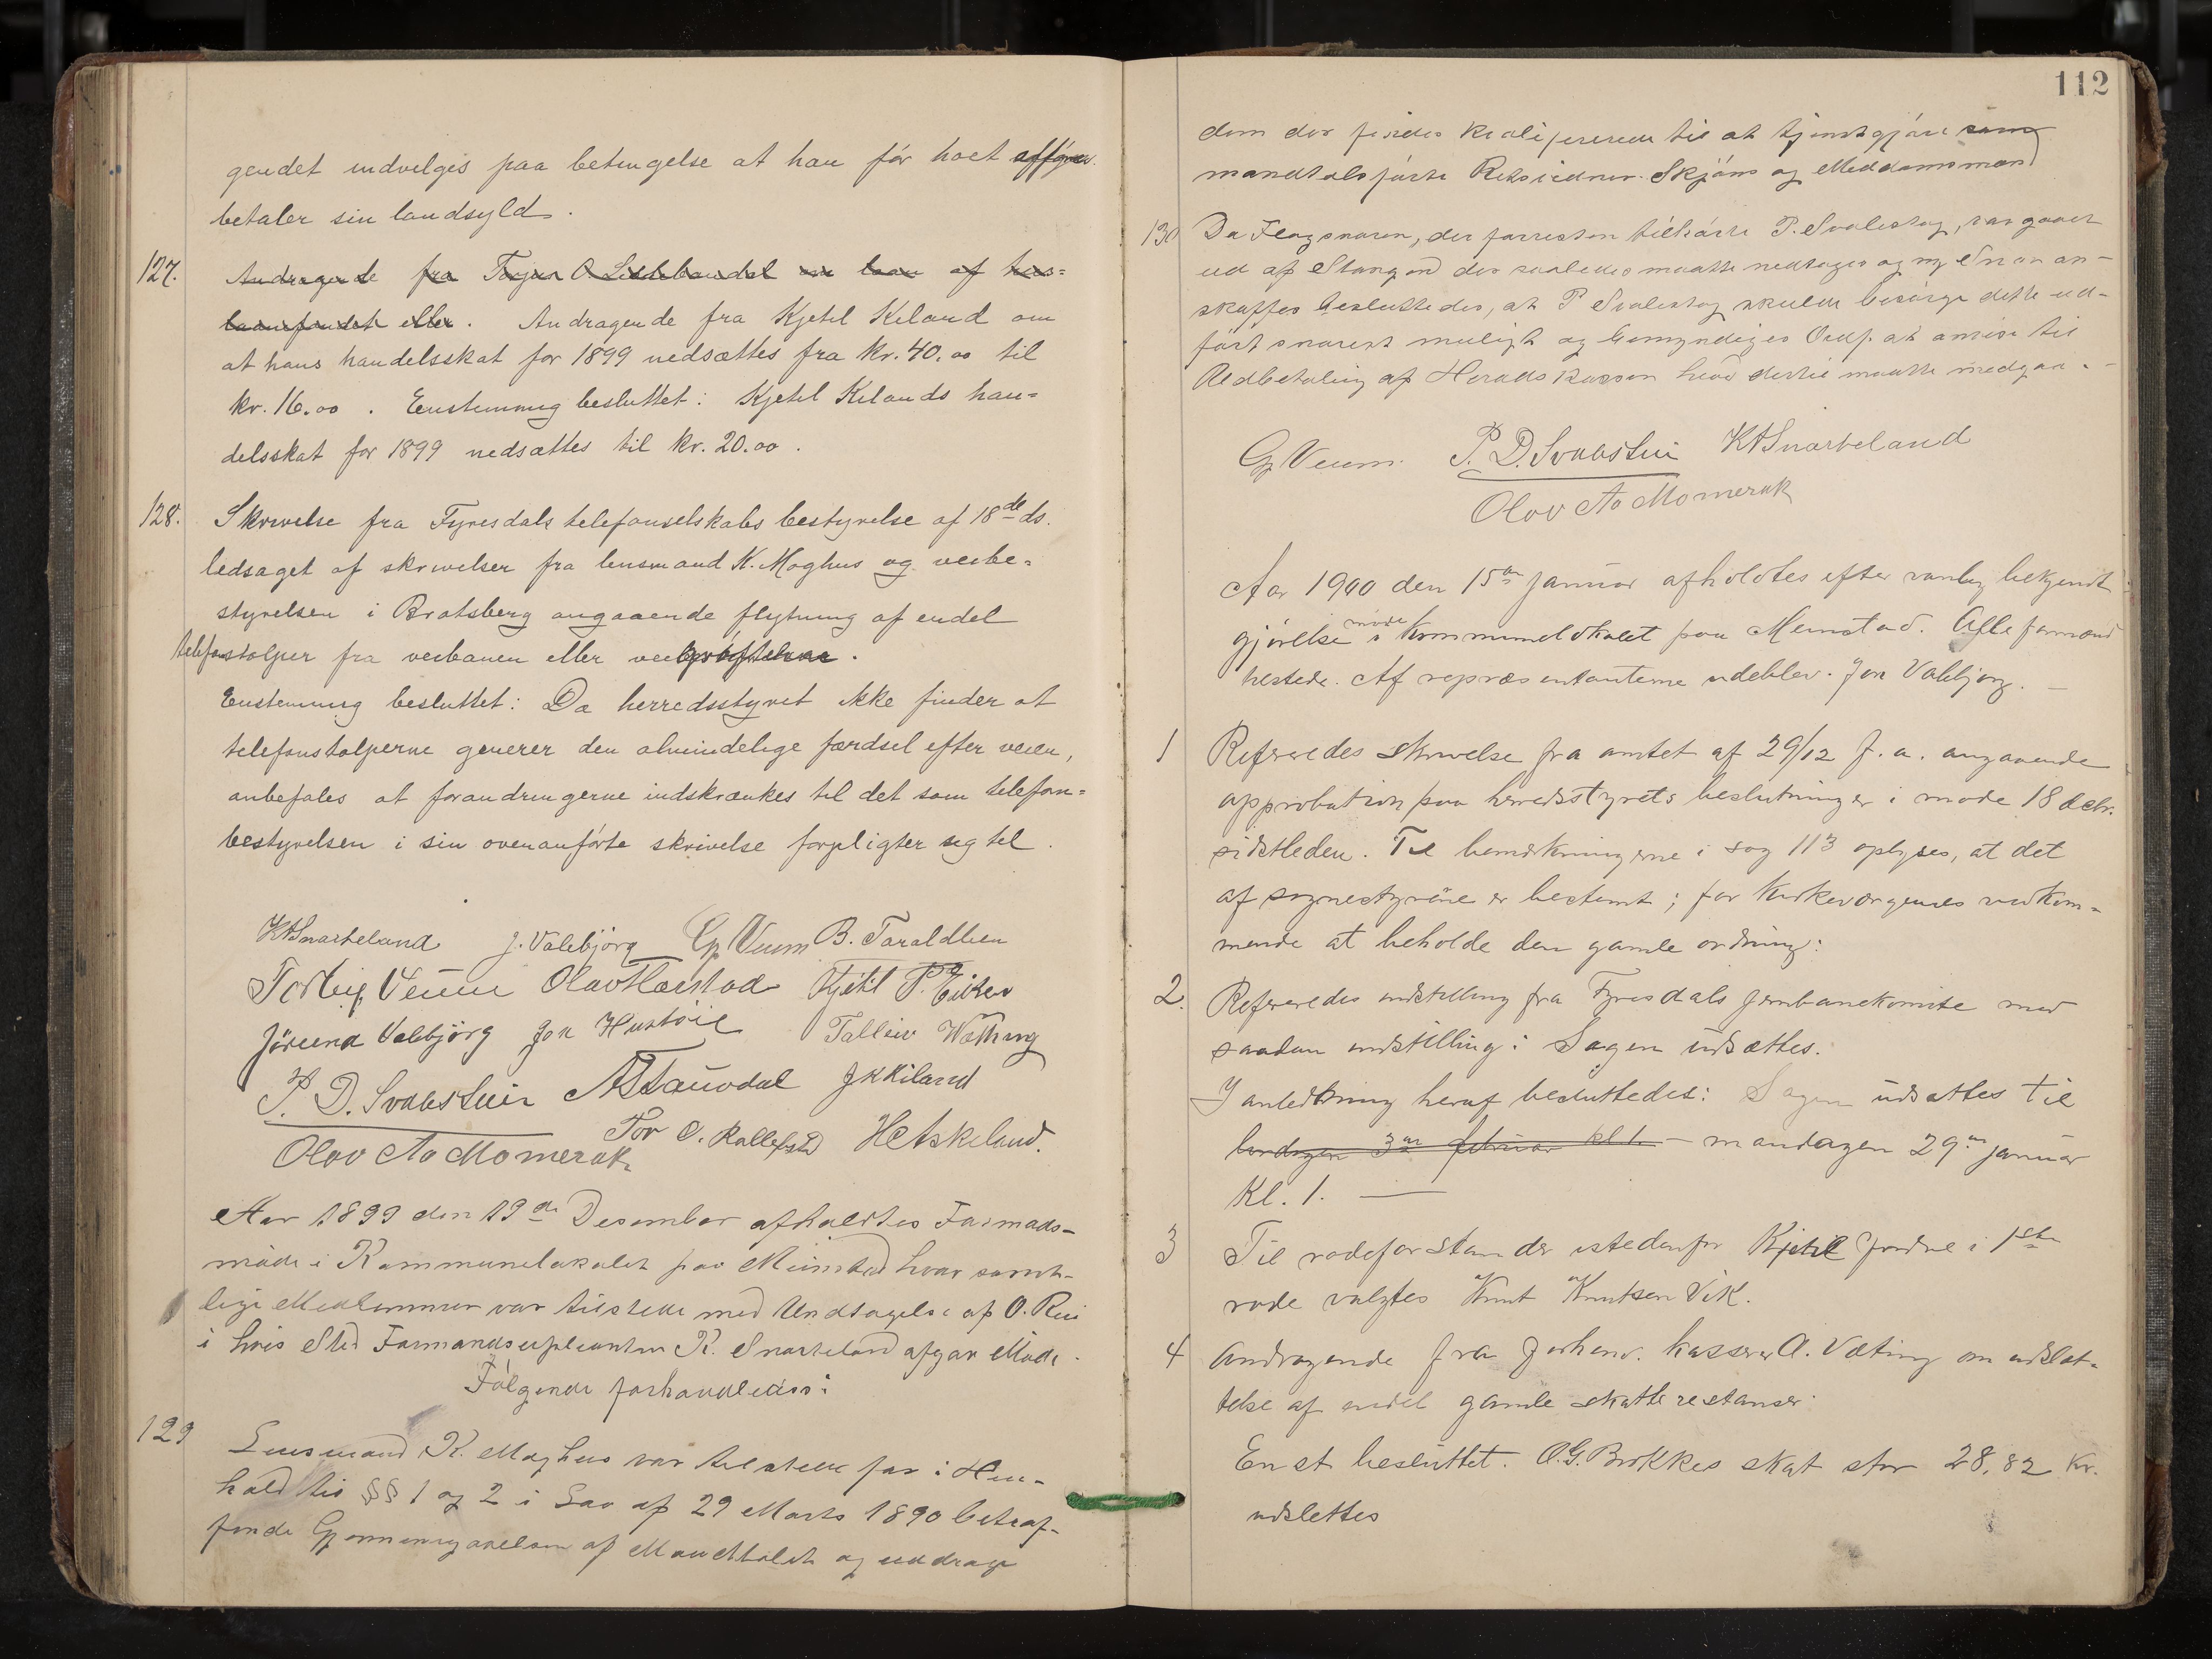 gendet indvelges paa betingelse at han før høct
betaler sin landsgyld.
127. Andragende fra Torjus O om laan af hus=
laanefondet eller. Andragende fra Kjetel Keland om
at hans handelsskat for 1899 nedsættes fra kr. 40.00 til
kr. 16.00. Enstemmig besluttet: Kjetel Kelands han=
delsskat for 1899 nedsættes til kr. 20.00.
128. Skrivelse fra Fyresdals telefonselskabs bestyrelse af 18de ds.
ledsaget af skrivelser fra lensmand K. Moghus og veibe=
styrelsen i Bratsberg angaaende flytning af endel
telefonstolper fra veibanen eller veigrøfterne.
Enstemmig besluttet: Da herredsstyret ikke finder at
telefonstolperne generer den almindelige færdsel efter veien,
anbefales at forandringerne indskrænkes til det som telefon=
bestyrelsen i sin ovenanførte skrivelse forpligter sig til.
KA Snarteland J. Valebjørg Gp Veum B. Taraldlien
Torleif Veum Olav Haistad Kjetil P. Eiken
Jørund Valebjørg Jon Hustveit Talleiv Wæthing
P. D. Svalestuir A Staurdal JK Kiland
Olav Aa Momerak Tor O. Rollefstad H Askeland.
Aar 1899 den 19de Desember afholdtes Formads-
møde i Kommunelokalet paa Meinstad hvor samt-
lige Medlemmer var tilstede med Undtagelse af O. Rui
i hvis Sted Formandssupleanten K. Snarteland afgav Møde.
Følgende forhandledes:
129 Lensmand K. Moghus var tilstede for i Hen-
hold til §§ 1 og 2 i Lov af 29 Marts 1890 betræf-
fende Gjennemgaaelsen af Mandtalet og uddrage
112
dem der findes kvalificerede til at tjenstgjøre som
mandtalsførte Retsvidner. Skjøns og Meddomsmænd
130 Da Flagsnoren, der forresten tilhørte P. Svalestog, var gaaet
ud af Stangen der saaledes maatte nedtages og ny Snor an-
skaffes besluttedes, at P Svalestog skulde besørge dette ud-
ført snarest muligt og bemyndiges Ordf. at anvise til
Udbetaling af Heradskassen hvad dertil maatte medgaa. -
Gp Veum. P. D. Svalestuir KA Snarteland
Olav Aa Momerak
Aar 1900 den 15de januar afholdtes efter vanlig bekjendt
gjørelse møde i kommunelokalet paa Meinstad. Alle formænd
tilstede. Af repræsentanterne udeblev. Jon Valebjørg. -
1 Refereredes skrivelse fra amtet af 29/12 f. a. angaaende
approbation paa herredsstyrets beslutninger i møde 18 decbr.
sidstleden. Til bemærkningerne i sag 113 oplyses, at det
af sognestyrerne er bestemt; for kirkeværgernes vedkom-
mende at beholde den gamle ordning:
2. Refereredes indstilling fra Fyresdals jernbanekomite med
saadan indstilling: Sagen udsættes.
I anledning heraf besluttedes: Sagen udsættes til
lørdagen 3de februar kl 1. - mandagen 29de januar
kl. 1.
3 Til rodeforstander istedenfor Kjetil Jordne i 1ste
rode valgtes Knut Knutsen Vik.
4 Andragende fra forhenv. kasserer A. Væting om udslet-
telse af endel gamle skatterestanser:
Enst besluttet. O.G. Brokkes skat stor 28,82 kr.
udslettes